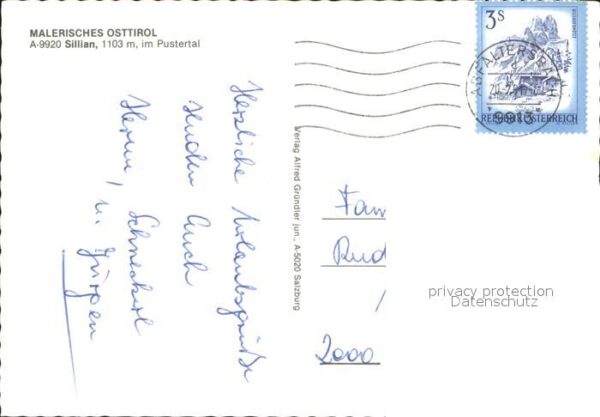 MALERISCHES OSTTIROL
A-9920 Sillian, 1103 m, im Pustertal
Herzliche Urlaubsgrüße
senden Euch
Hermi, Schneckerl
u. Jürgen
Verlag Alfred Gründler jun., A-5020 Salzburg
3 S
ABFALTERSBACH
9913
REPUBLIK ÖSTERREICH
Fam
Rud
2000
privacy protection
Datenschutz